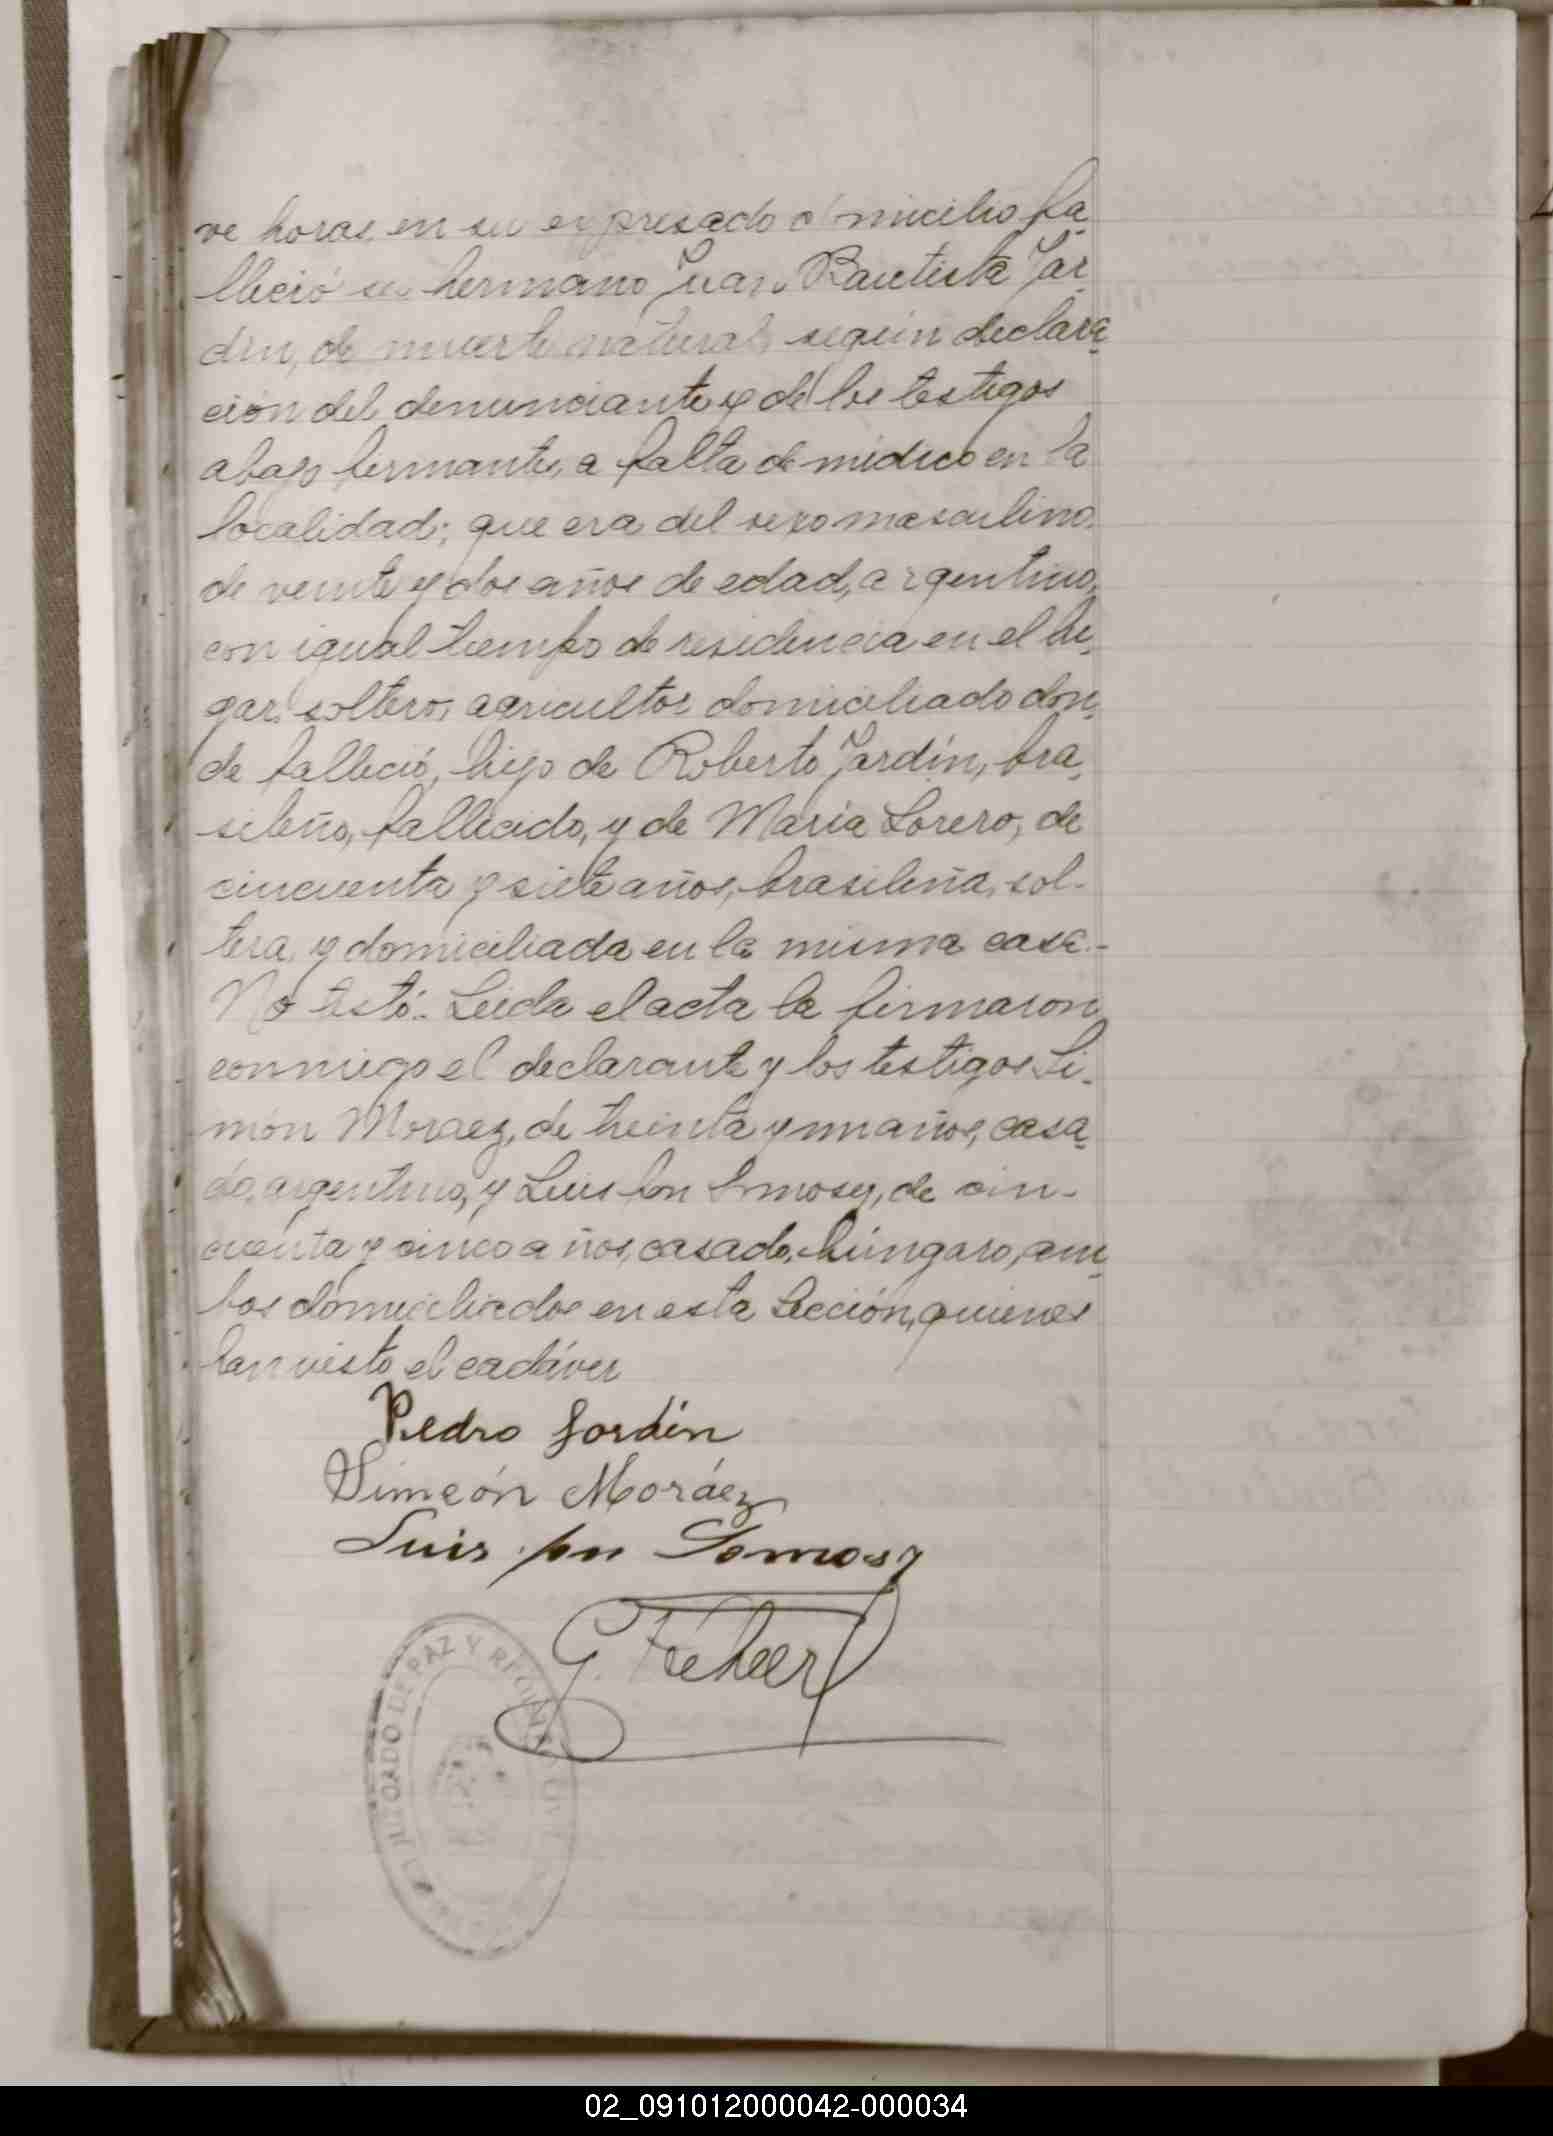 ve horas en su expresado domicilio fa-
lleció su hermano Juan Bautista Jar-
din, de muerte natural, según declara-
ción del denunciante y de los testigos
abajo firmantes, a falta de médico en la
localidad; que era del sexo masculino,
de veinte y dos años de edad, argentino,
con igual tiempo de residencia en el lu-
gar, soltero, agricultor domiciliado don-
de falleció, hijo de Roberto Jardín, bra-
sileño, fallecido, y de María Lorero, de
cincuenta y siete años, brasileña, sol-
tera y domiciliada en la misma casa.-
No testó.- Leida el acta la firmaron
conmigo el declarante y los testigos Si-
món Moraez, de treinta y un años, casa-
do, argentino, y Luis fon Somosy, de cin-
cuenta y cinco años, casado, húngaro, am-
bos domiciliados en esta Sección, quienes
han visto el cadáver
Pedro Jordín
Simeón Moráez
Luis fon Somosy
G. Fehér
JUZGADO DE PAZ Y REG
02_091012000042-000034